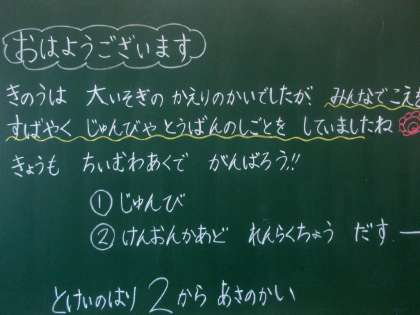 おはようございます
きのうは 大いそぎの かえりのかいでしたが、みんなでこえ
すばやく じゅんびや とうばんのしごとを していましたね
きょうも ちいむわあくで がんばろう!!
①じゅんび
②けんおんかあど れんらくちょう だす
とけいのはり 2から あさのかい